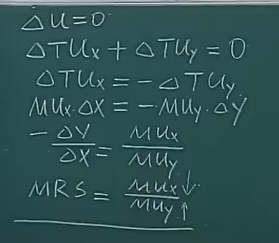 △U=0
△TUx + △TUy = 0
△TUx = - △TUy
MUx·△X = -MUy·△Y
- △Y/△X = MUx/MUy
MRS = MUx↓/MUy↑